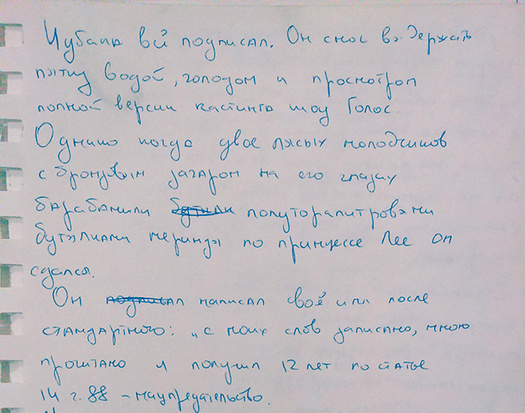 Чубака всё подписал. Он смог выдержать
пытку водой, голодом и просмотром
полной версии кастинга шоу Голос
Однако когда двое лысых молодчиков
с бронзовым загаром на его глазах
барабанили бутыли полуторалитровыми
бутылками меринды по принцессе Лее он
сдался.
Он подписал написал своё имя после
стандартного: „с моих слов записано, мною
прочитано и получил 12 лет по статье
14 г. 88 – нацпредательство.